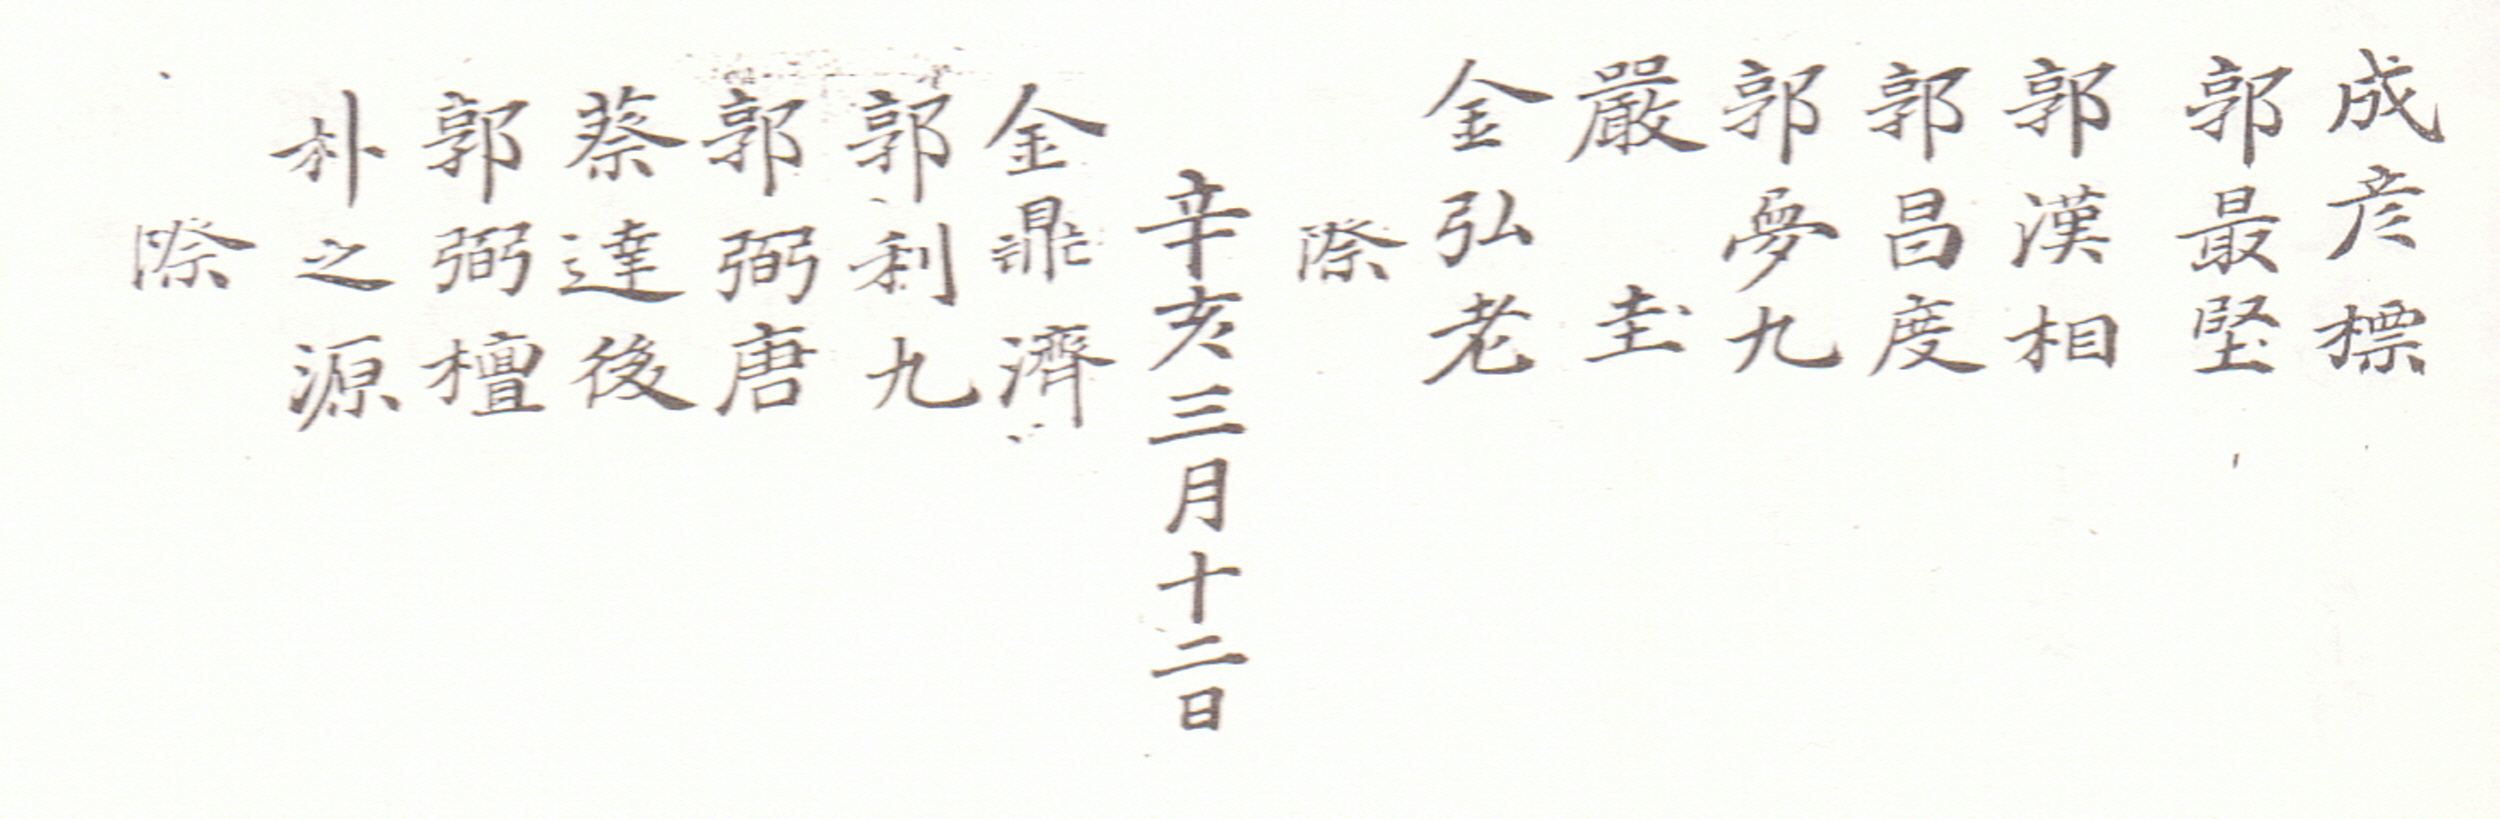 成彦標
郭最堅
郭漢相
郭昌度
郭夢九
嚴 𡊠
金弘老
際
辛亥三月十二日
金鼎濟
郭利九
郭弼唐
蔡達後
郭弼檀
朴之源
際